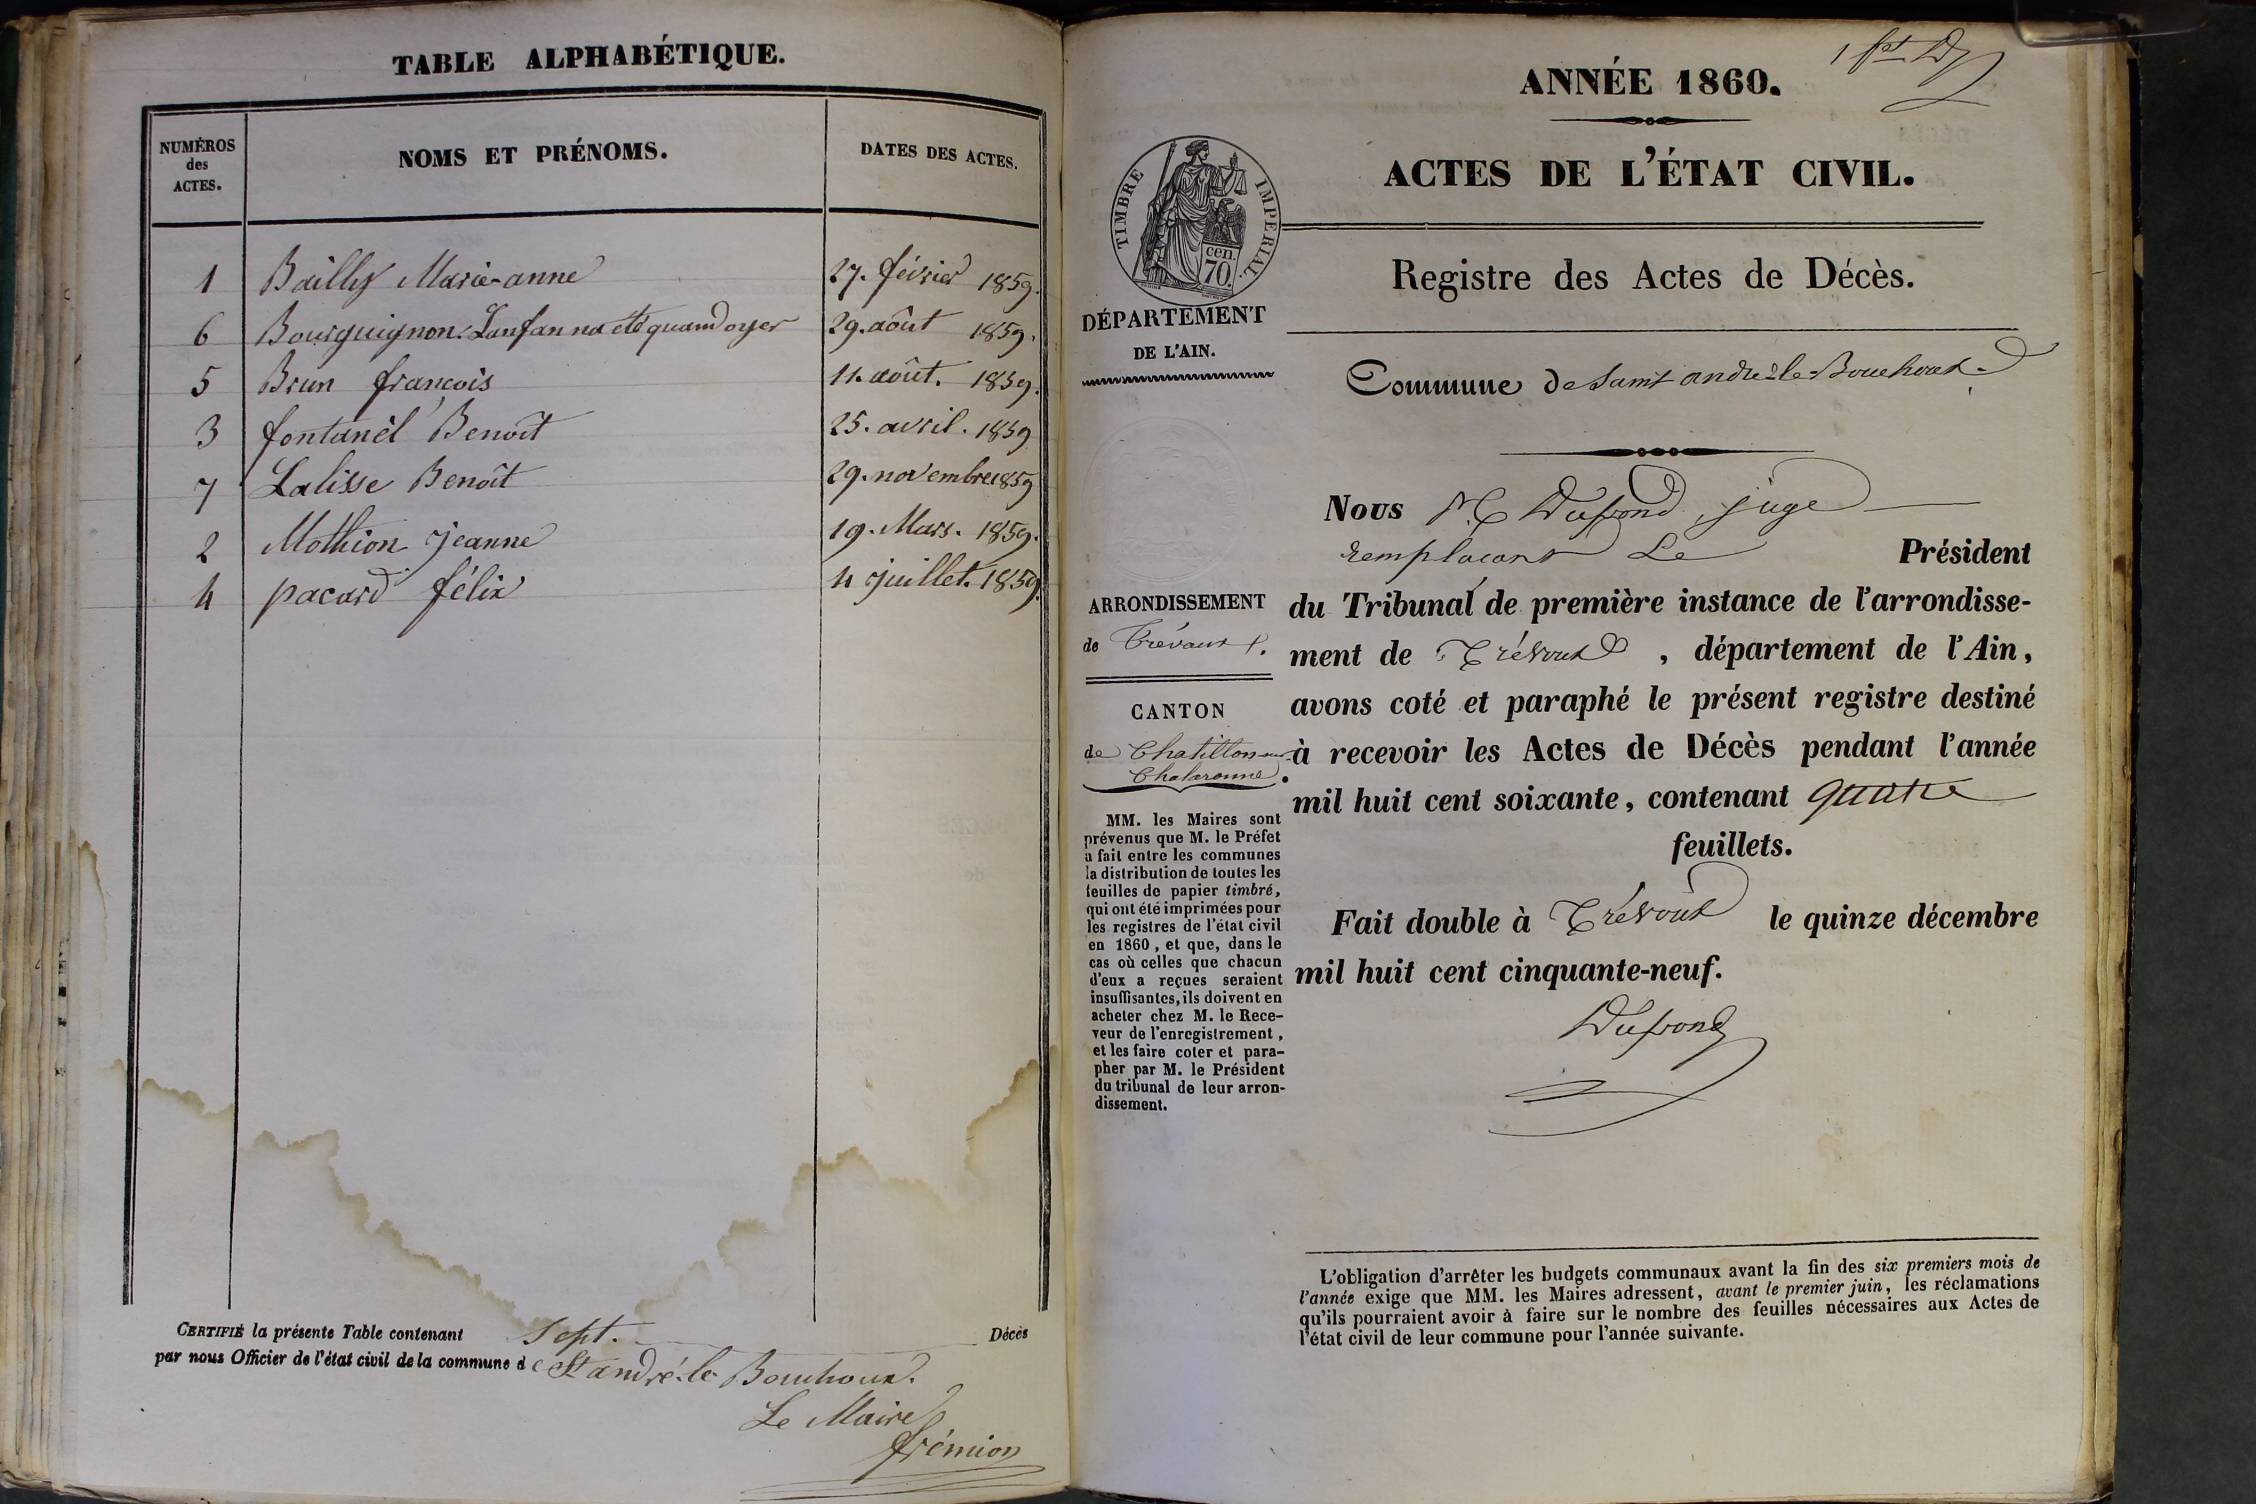 TABLE ALPHABÉTIQUE.
NUMÉROS des ACTES. NOMS ET PRÉNOMS. DATES DES ACTES.
1 Bailly Marie-anne 27. février 1859.
6 Bourguignon. L'enfan na été quandoyer 29. août 1859.
5 Brun françois 11. août. 1859.
3 fontanèl Benoît 25. avril. 1859
7 Lalisse Benoît 29. novembre 1859
2 Mothion Jeanne 19. Mars. 1859.
4 pacard félix 4 juillet. 1859.
CERTIFIÉ la présente Table contenant sept. Décès
par nous Officier de l'état civil de la commune de St andré-le-Bouchoux.
Le Maire
frémion
ANNÉE 1860.
ACTES DE L'ÉTAT CIVIL.
TIMBRE IMPÉRIAL.
cen.
70.
Registre des Actes de Décès.
DÉPARTEMENT
DE L'AIN.
Commune de Saint andré-le-Bouchoux.
Nous M. Dupond juge
remplaçant Le Président
du Tribunal de première instance de l'arrondisse-
ment de Trévoux, département de l'Ain,
avons coté et paraphé le présent registre destiné
à recevoir les Actes de Décès pendant l'année
mil huit cent soixante, contenant quatre
feuillets.
Fait double à Trévoux le quinze décembre
mil huit cent cinquante-neuf.
Dupond
ARRONDISSEMENT
de Trévoux.
CANTON
de Chatillon-sur-
Chalaronne.
MM. les Maires sont
prévenus que M. le Préfet
a fait entre les communes
la distribution de toutes les
feuilles de papier timbré,
qui ont été imprimées pour
les registres de l'état civil
en 1860, et que, dans le
cas où celles que chacun
d'eux a reçues seraient
insuffisantes, ils doivent en
acheter chez M. le Rece-
veur de l'enregistrement,
et les faire coter et para-
pher par M. le Président
du tribunal de leur arron-
dissement.
L'obligation d'arrêter les budgets communaux avant la fin des six premiers mois de
l'année exige que MM. les Maires adressent, avant le premier juin, les réclamations
qu'ils pourraient avoir à faire sur le nombre des feuilles nécessaires aux Actes de
l'état civil de leur commune pour l'année suivante.